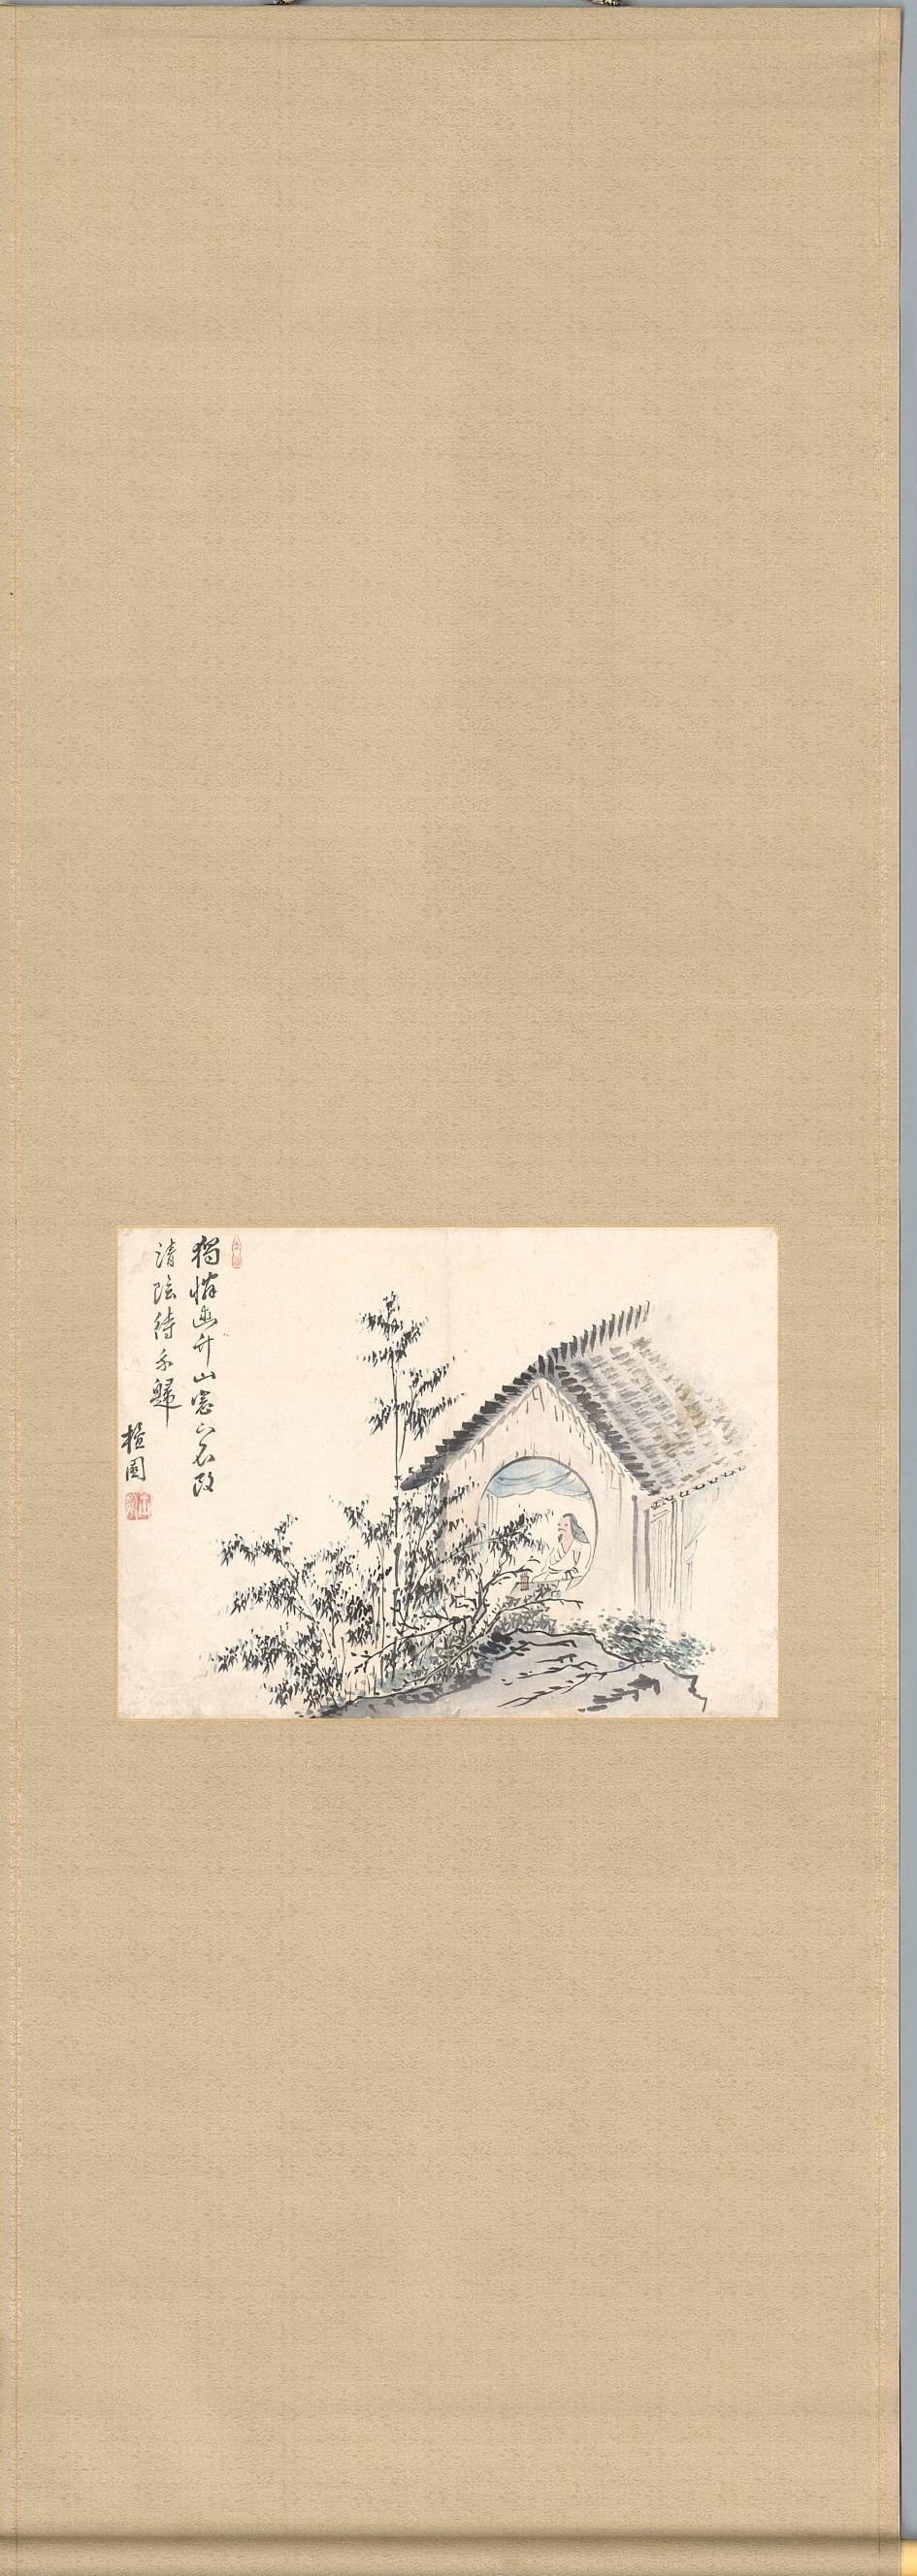 獨憐幽竹山窓下不改
清陰待我歸
園